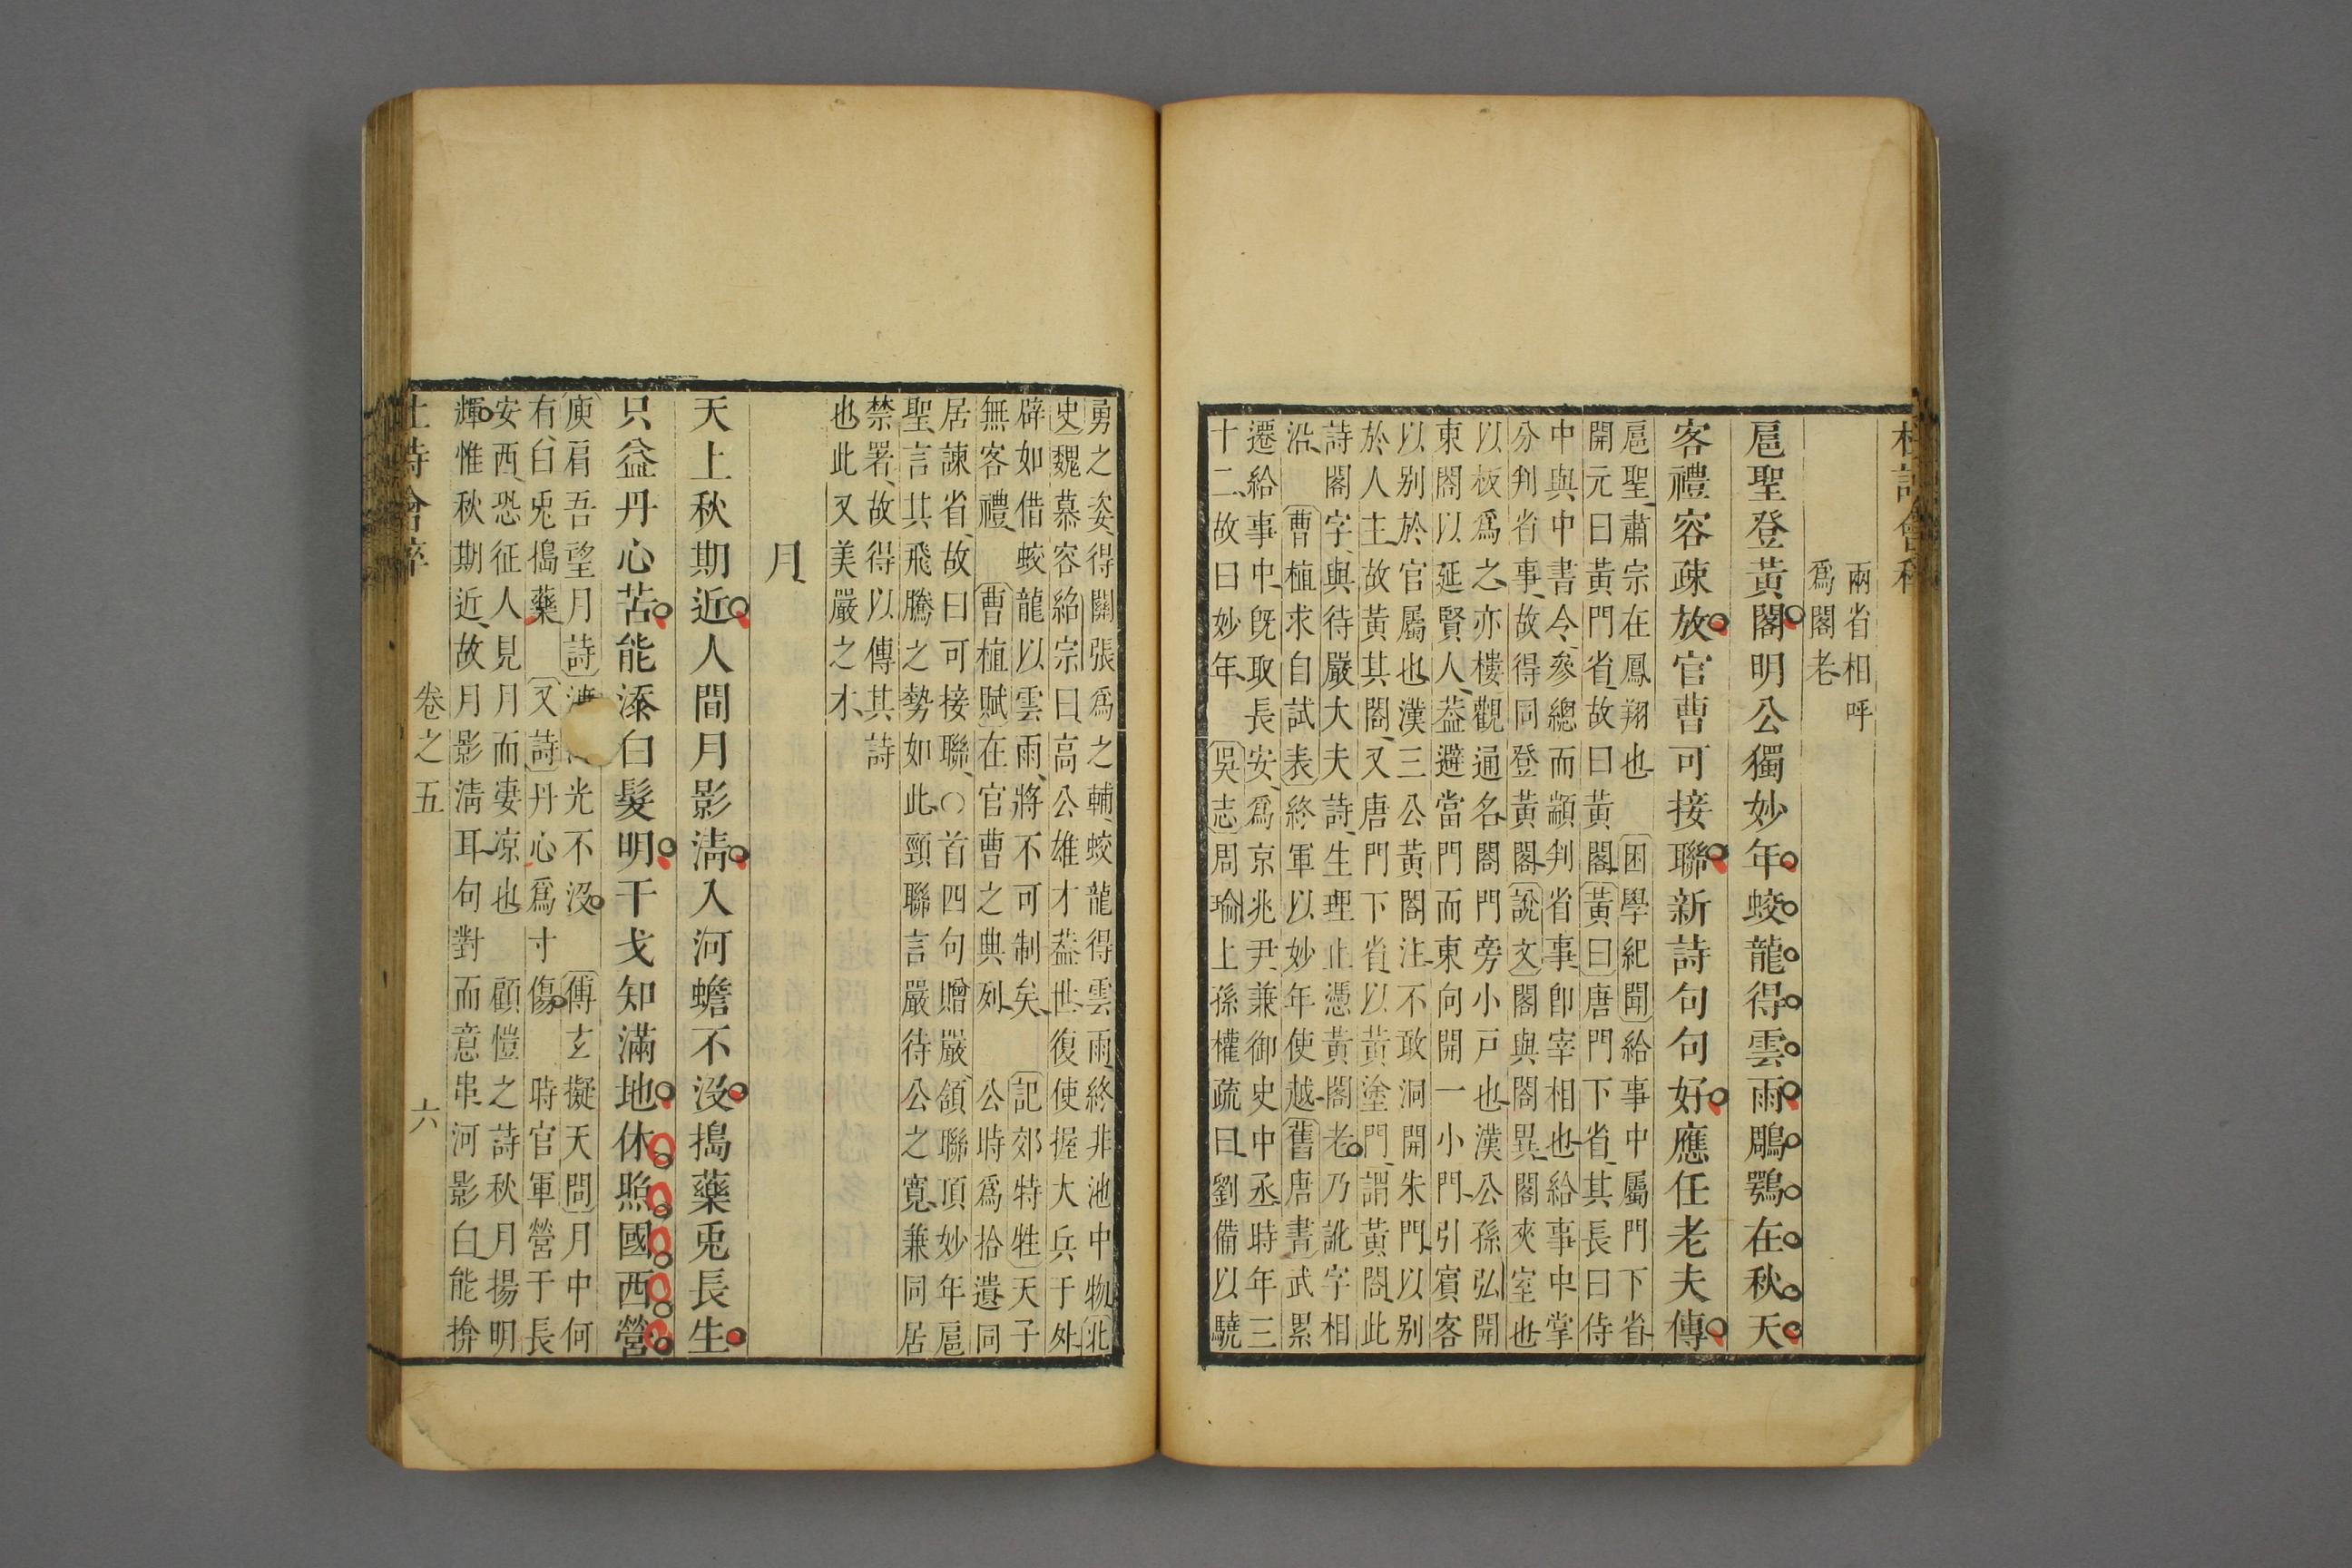 兩省相呼
爲閣老
扈聖登黃閣明公獨妙年蛟龍得雲雨鵰鶚在秋天
客禮容疎放官曹可接聯新詩句句好應任老夫傳
扈聖肅宗在鳳翔也困學紀聞給事中屬門下省
開元曰黃門省故曰黃閣黃曰唐門下省其長曰侍
中與中書令參總而顓判省事卽宰相也給事中掌
分判省事故得同登黃閣說文閣與閤異閣夾室也
以板爲之亦樓觀通名閤門旁小戸也漢公孫弘開
東閤以延賢人葢避當門而東向開一小門引賓客
以別於官屬也漢三公黃閤注不敢洞開朱門以別
於人主故黃其閤又唐門下省以黃塗門謂黃閤此
詩閣字與待嚴大夫詩生理止憑黃閣老乃訛字相
沿曹植求自試表終軍以妙年使越舊唐書武累
遷給事中旣取長安爲京兆尹兼御史中丞時年三
十二故曰妙年吳志周瑜上孫權疏曰劉備以驍
勇之姿得關張爲之輔蛟龍得雲雨終非池中物北
史魏慕容紹宗曰高公雄才葢世復使握大兵于外
辟如借蛟龍以雲雨將不可制矣記郊特牲天子
無客禮曹植賦在官曹之典列公時爲拾遺同
居諫省故曰可接聯○首四句贈嚴頷聯頂妙年扈
聖言其飛騰之勢如此頸聯言嚴待公之寬兼同居
禁署故得以傳其詩
也此又美嚴之才
月
天上秋期近人間月影淸入河蟾不沒搗藥兎長生
只益丹心苦能添白髮明干戈知滿地休照國西營
庾肩吾望月詩光不沒傅玄擬天問月中何
有白兎搗藥又詩丹心爲寸傷時官軍營于長
安西恐征人見月而凄凉也顧愷之詩秋月揚明
輝惟秋期近故月影淸耳句對而意串河影白能揜
卷之五
六